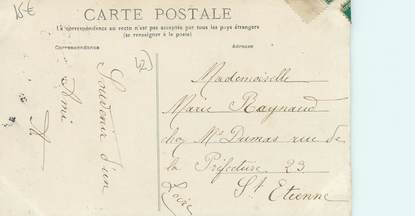 15€
CARTE POSTALE
La correspondance au verso n'est pas acceptée par tous les pays étrangers
(se renseigner à la poste)
Correspondance
Adresse
42)
Souvenir d'un
Ami
A
Mademoiselle
Marie Raynaud
Mr Dumas rue de
la Préfecture 23
St Etienne
Loire